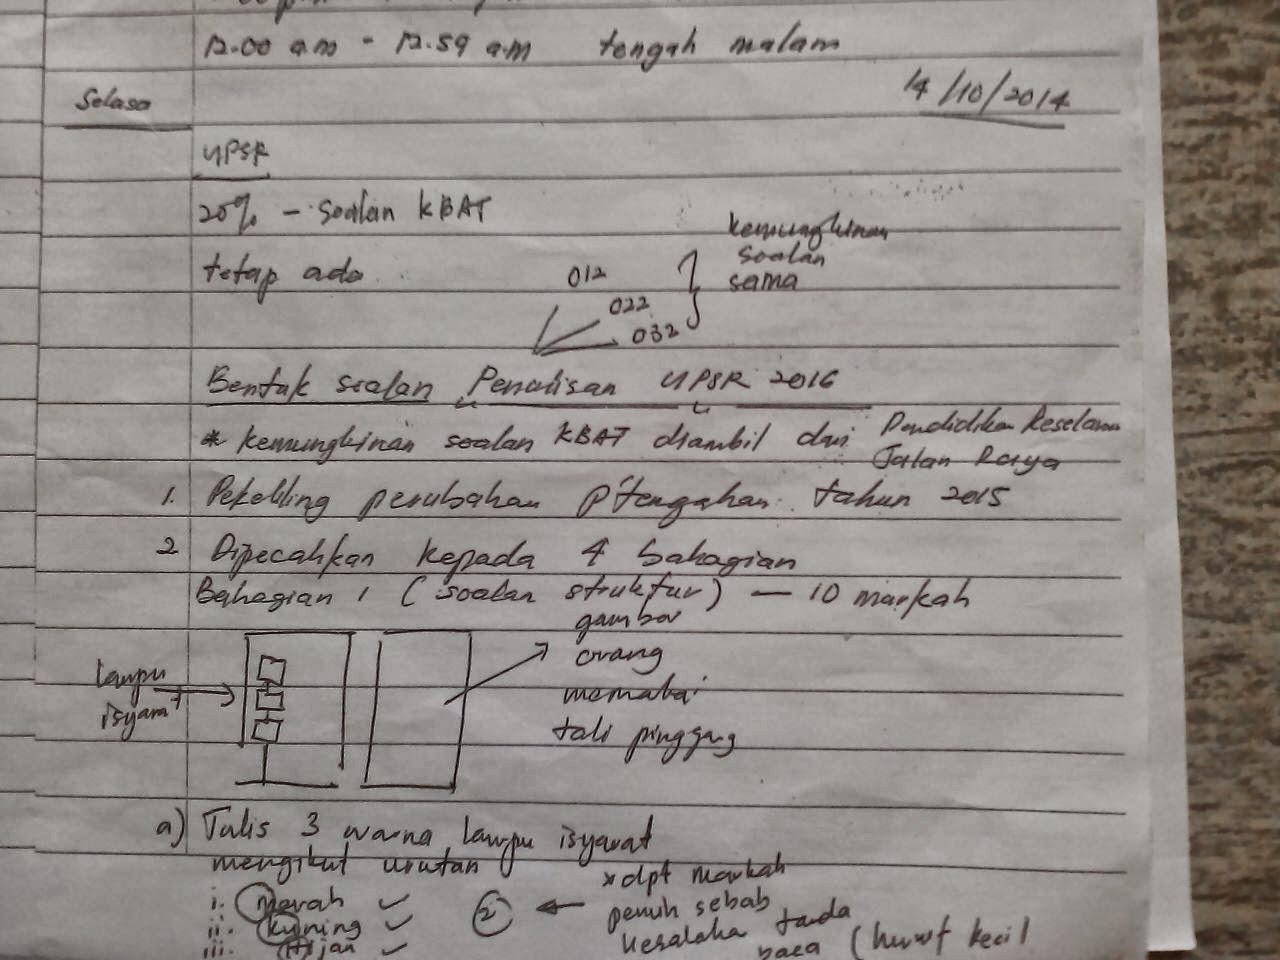 12.00 a.m - 12.59 a.m tengah malam
Selasa
14/10/2014
UPSR
20% - soalan KBAT
tetap ada
012
022
032
kemungkinan
soalan
sama
Bentuk soalan Penulisan UPSR 2016
* kemungkinan soalan KBAT diambil dari Pendidikan Keselama
Jalan Raya
1. Pekeliling perubahan p'tengahan tahun 2015
2 Dipecahkan kepada 4 bahagian
Bahagian 1 (soalan struktur) — 10 markah
lampu
isyarat
gambar
orang
memakai
tali pinggang
a) Tulis 3 warna lampu isyarat
mengikut urutan
i. Merah ✓
ii. Kuning ✓
iii. Hijau ✓
2
x dpt markah
penuh sebab
kesalaha tanda
baca (huruf kecil